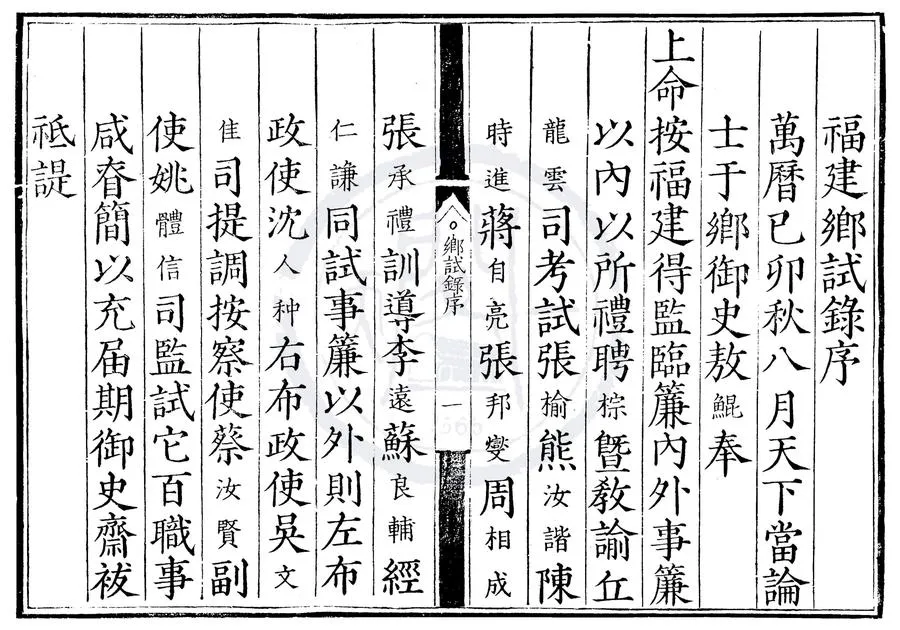 福建鄉試錄序
萬曆己卯秋八月天下當論
士于鄉御史敖鯤奉
上命按福建得監臨簾內外事簾
以內以所禮聘棕暨教諭丘
龍雲司考試張榆熊汝諧陳
時進蔣自亮張邦變周相成
鄉試錄序
一
張承禮訓導李遠蘇良輔經
仁謙同試事簾以外則左布
政使沈人种右布政使吳文
佳司提調按察使蔡汝賢副
使姚體信司監試它百職事
咸脊簡以充屆期御史齋祓
祗諟